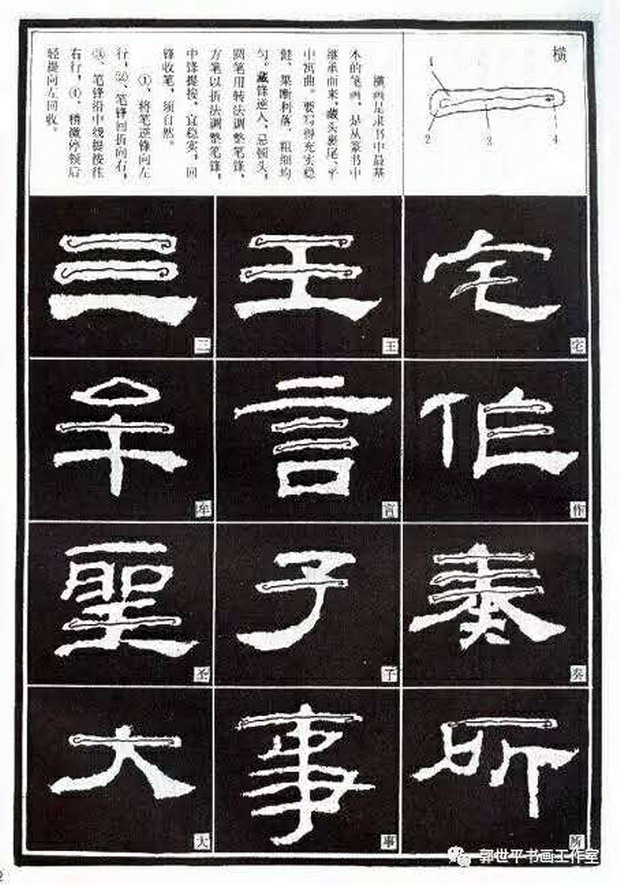 横
1
2
3
4
横画是隶书中最基
本的笔画，是从篆书中
继承而来，藏头裹尾，平
中寓曲。要写得充实稳
健，果断利落，粗细均
匀。藏锋逆入，忌顿头，
圆笔用转法调整笔锋，
方笔以折法调整笔锋，
中锋提按，宜稳实，回
锋收笔，须自然。
①、将笔逆锋向左
行，②、笔锋回折向右，
③、笔锋沿中线提按往
右行，④、稍微停顿后
轻提向左回收。
宅
宅
作
作
奏
奏
所
所
王
王
言
言
子
子
事
事
三
三
牟
牟
聖
圣
大
大
2
郭世平书画工作室